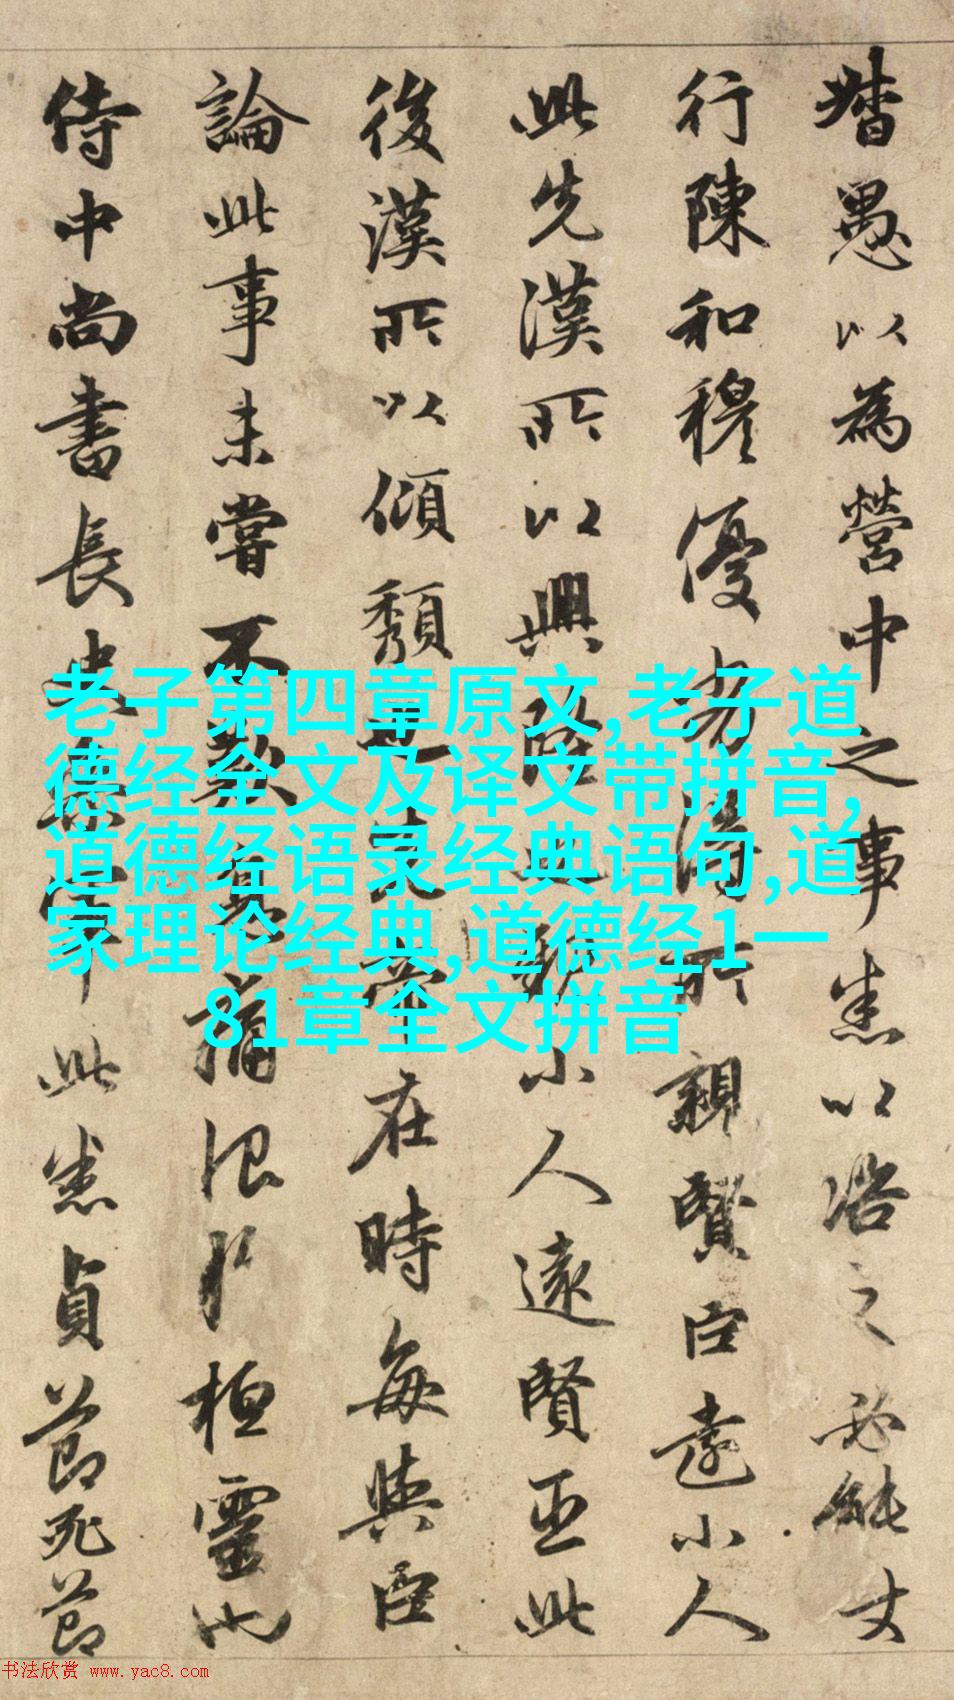 督愚以為營中之事悉以咨之必能
行陳和穆優劣得所親賢臣遠小人
此先漢所以興隆也親小人遠賢臣此
後漢所以傾頹也先帝在時每與臣
論此事未嘗不歎息痛恨於桓靈也
侍中尚書長史參軍此悉貞節死節
老子第四章原文,老子道
德经全文及译文带拼音,
道德经语录经典语句,道
家理论经典,道德经1一
81章全文拼音
书法欣赏 www.yac8.com